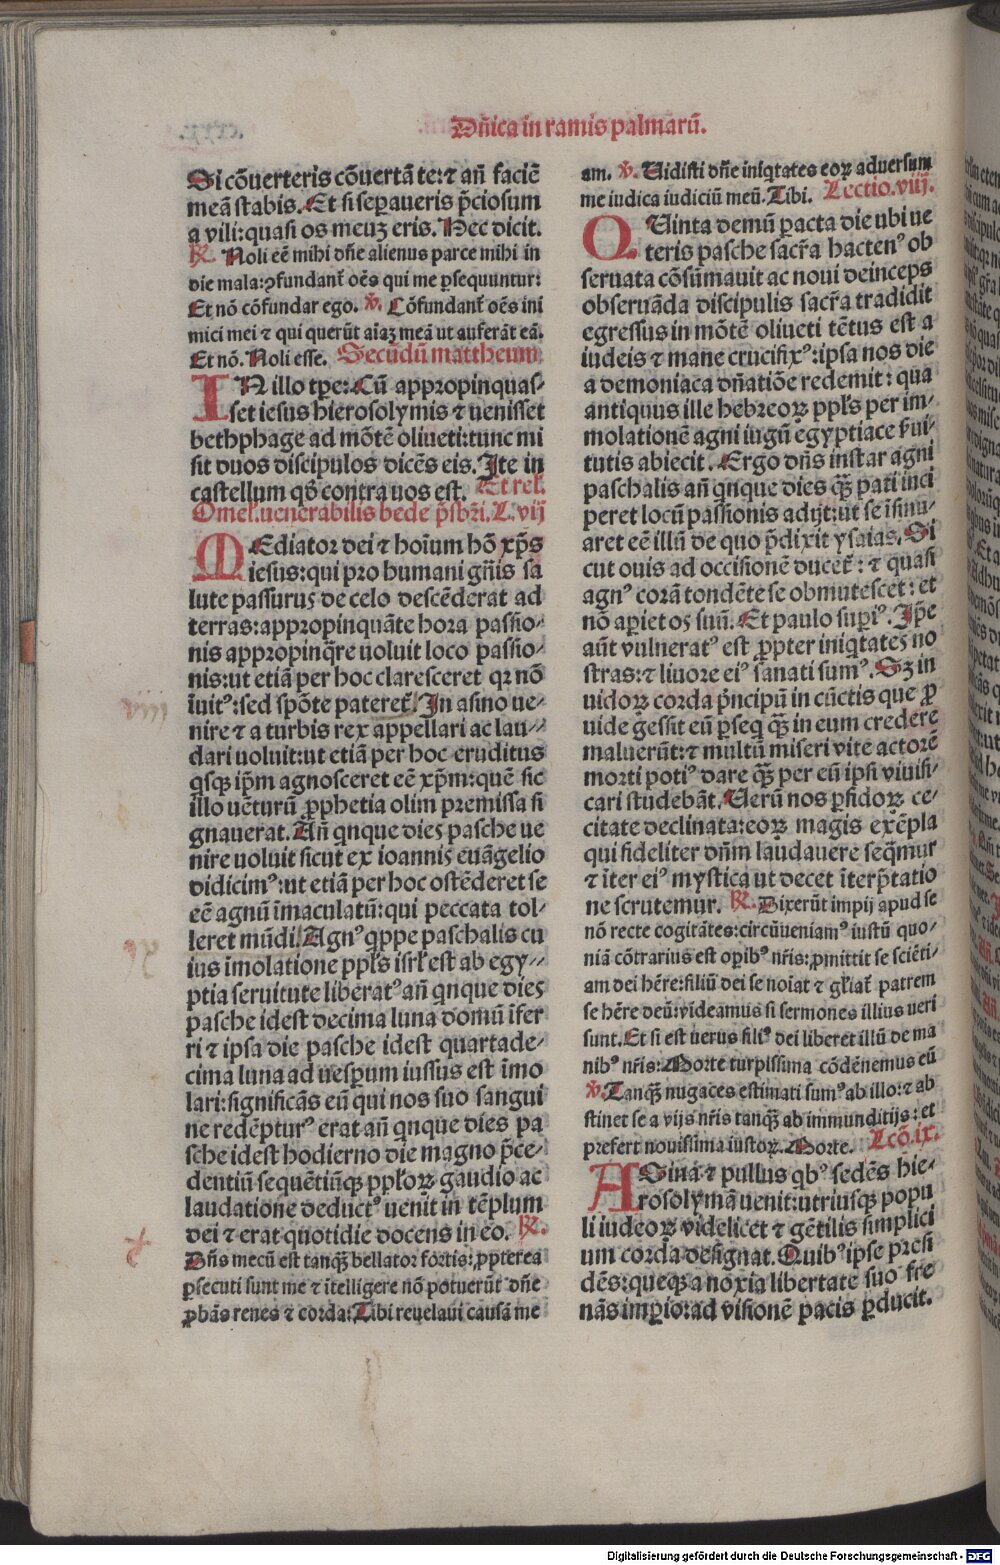 Dñica in ramis palmarū.
Si cōuerteris cōuertā te: ⁊ añ faciē
meā stabis. Et si seꝑaueris p̄ciosum
a vili: quasi os meuꝫ eris. Hec dicit.
℟. Noli eē mihi dñe alienus parce mihi in
die mala: ꝯfundant̄ oēs qui me ꝑsequuntur:
Et nō cōfundar ego. ℣. Cōfundant̄ oēs ini
mici mei ⁊ qui querūt aīaꝫ meā ut auferāt eā.
Et nō. Noli esse. Secūdū mattheum
IN illo tꝑe: Cū appropinquas⸗
set iesus hierosolymis ⁊ uenisset
bethphage ad mōtē oliueti: tunc mi
sit duos discipulos dicēs eis. Ite in
castellum qd̄ contra uos est. Et reł.
Omeł. uenerabilis bede p̄sbr̄i. L. vij
MEdiator dei ⁊ hoīum hō xp̄s
iesus: qui pro humani gn̄is sa
lute passurus de celo descēderat ad
terras: appropinquāte hora passio⸗
nis appropinq̄re uoluit loco passio⸗
nis: ut etiā per hoc claresceret qꝛ nō
īuitꝰ: sed spōte pateret̄. In asino ue⸗
nire ⁊ a turbis rex appellari ac lau⸗
dari uoluit: ut etiā per hoc eruditus
qsqꝫ ip̄m agnosceret eē xp̄m: quē sic
illo uēturū ꝓphetia olim premissa si
gnauerat. Añ qnque dies pasche ue
nire uoluit sicut ex ioannis euāgelio
didicimꝰ: ut etiā per hoc ostēderet se
eē agnū īmaculatū: qui peccata tol⸗
leret mūdi. Agnꝰ qppe paschalis cu
ius īmolatione ppłs isrł est ab egy⸗
ptia seruitute liberatꝰ añ qnque dies
pasche idest decima luna domū īfer
ri ⁊ ipsa die pasche idest quartade⸗
cima luna ad uesꝑum iussus est īmo
lari: significās eū qui nos suo sangui
ne redēpturꝰ erat añ qnque dies pa
sche idest hodierno die magno p̄ce⸗
dentiū sequētiūqꝫ ppłoꝝ gaudio ac
laudatione deductꝰ uenit in tēplum
dei ⁊ erat quotidie docens in eo. ℟.
Dñs mecū est tanqꝫ̄ bellator fortis: ꝓpterea
ꝑsecuti sunt me ⁊ ītelligere nō potuerūt dñe
ꝓbās renes ⁊ corda: Tibi reuelaui causā me
am. ℣. Uidisti dñe iniqtates eoꝝ aduersum
me iudica iudiciū meū. Tibi. Lectio. viij.
QUinta demū ꝑacta die ubi ue
teris pasche sacr̄a hactenꝰ ob
seruata cōsūmauit ac noui deinceps
obseruāda discipulis sacr̄a tradidit
egressus in mōtē oliueti tētus est a
iudeis ⁊ mane crucifixꝰ: ipsa nos die
a demoniaca dñatiōe redemit: qua
antiquus ille hebreoꝝ ppłs per im⸗
molationē agni iugū egyptiace ẜui⸗
tutis abiecit. Ergo dñs instar agni
paschalis añ qnque dies qꝫ̄ pati inci
peret locū passionis adijt: ut se īsinu⸗
aret eē illū de quo p̄dixit ysaias. Si
cut ouis ad occisionē ducet̄: ⁊ quasi
agnꝰ corā tondēte se obmutescet: et
nō aꝑiet os suū. Et paulo suꝑiꝰ. Ip̄e
aūt vulneratꝰ est ꝓpter iniqtates no
stras: ⁊ liuore eiꝰ sanati sumꝰ. Sꝫ in
uidoꝝ corda p̄ncipū in cūctis que ꝓ
uide gessit eū ꝑseq qꝫ̄ in eum credere
maluerūt: ⁊ multū miseri vite actorē
morti potiꝰ dare qꝫ̄ per eū ipsi viuifi⸗
cari studebāt. Uerū nos ꝑfidoꝝ ce⸗
citate declinata: eoꝝ magis exēpla
qui fideliter dñm laudauere seq̄mur
⁊ īter eiꝰ mystica ut decet īterp̄tatio
ne scrutemur. ℟. Dixerūt impij apud se
nō recte cogitātes: circūueniamꝰ iustū quo⸗
niā cōtrarius est oꝑibꝰ nr̄is: ꝓmittit se sciēti⸗
am dei hēre: filiū dei se noīat ⁊ gł̄iat̄ patrem
se hēre deū: videamus si sermones illius ueri
sunt. Et si est uerus filiꝰ dei liberet illū de ma
nibꝰ nr̄is: Morte turpissima cōdēnemus eū
℣. Tanqꝫ̄ nugaces estimati sumꝰ ab illo: ⁊ ab
stinet se a vijs nr̄is tanqꝫ̄ ab immunditijs: et
prefert nouissima iustoꝝ. Morte. Lcō. ix.
ASina ⁊ pullus qbꝰ sedēs hie⸗
rosolymā uenit: utriusqꝫ popu
li iudeoꝝ videlicet ⁊ gētilis simplici
um corda designat. Quibꝰ ipse presi
dēs: queqꝫ a noxia libertate suo fre
nās imꝑio: ad visionē pacis ꝑducit.
Digitalisierung gefördert durch die Deutsche Forschungsgemeinschaft - DFG